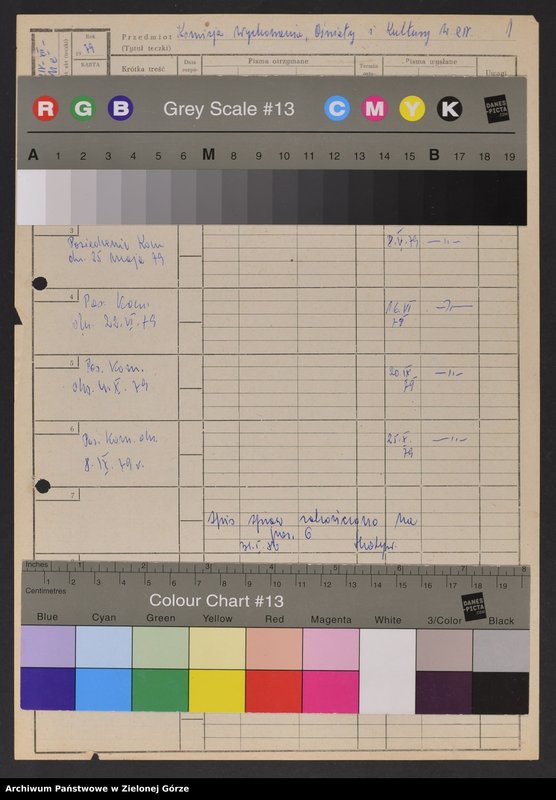 Rok
79
KARTA
Przedmiot Komisja Wychowania, Oświaty i Kultury
(Tytuł teczki)
1
Krótka treść
Data
Pisma otrzymane
Termin
Pisma wysłane
Uwagi
R G B Grey Scale #13 C M Y K
DANES-PICTA.COM
A 1 2 3 4 5 6 M 8 9 10 11 12 13 14 15 B 17 18 19
3
Posiedzenie Kom
dn. 25 maja 79
8.V.79 — " —
4
Pos. Kom.
dn. 22.VI.79
16.VI
79
5
Pos. Kom.
20.IX
79
— " —
6
Pos. Kom. dn.
8. IX. 79 r.
25.X.
79
— " —
7
Spis spraw zakończono na
poz. 6
Inches 1 2 3 4 5 6 7 8
Centimetres 1 2 3 4 5 6 7 8 9 10 11 12 13 14 15 16 17 18 19
Colour Chart #13
DANES-PICTA.COM
Blue Cyan Green Yellow Red Magenta White 3/Color Black
Archiwum Państwowe w Zielonej Górze